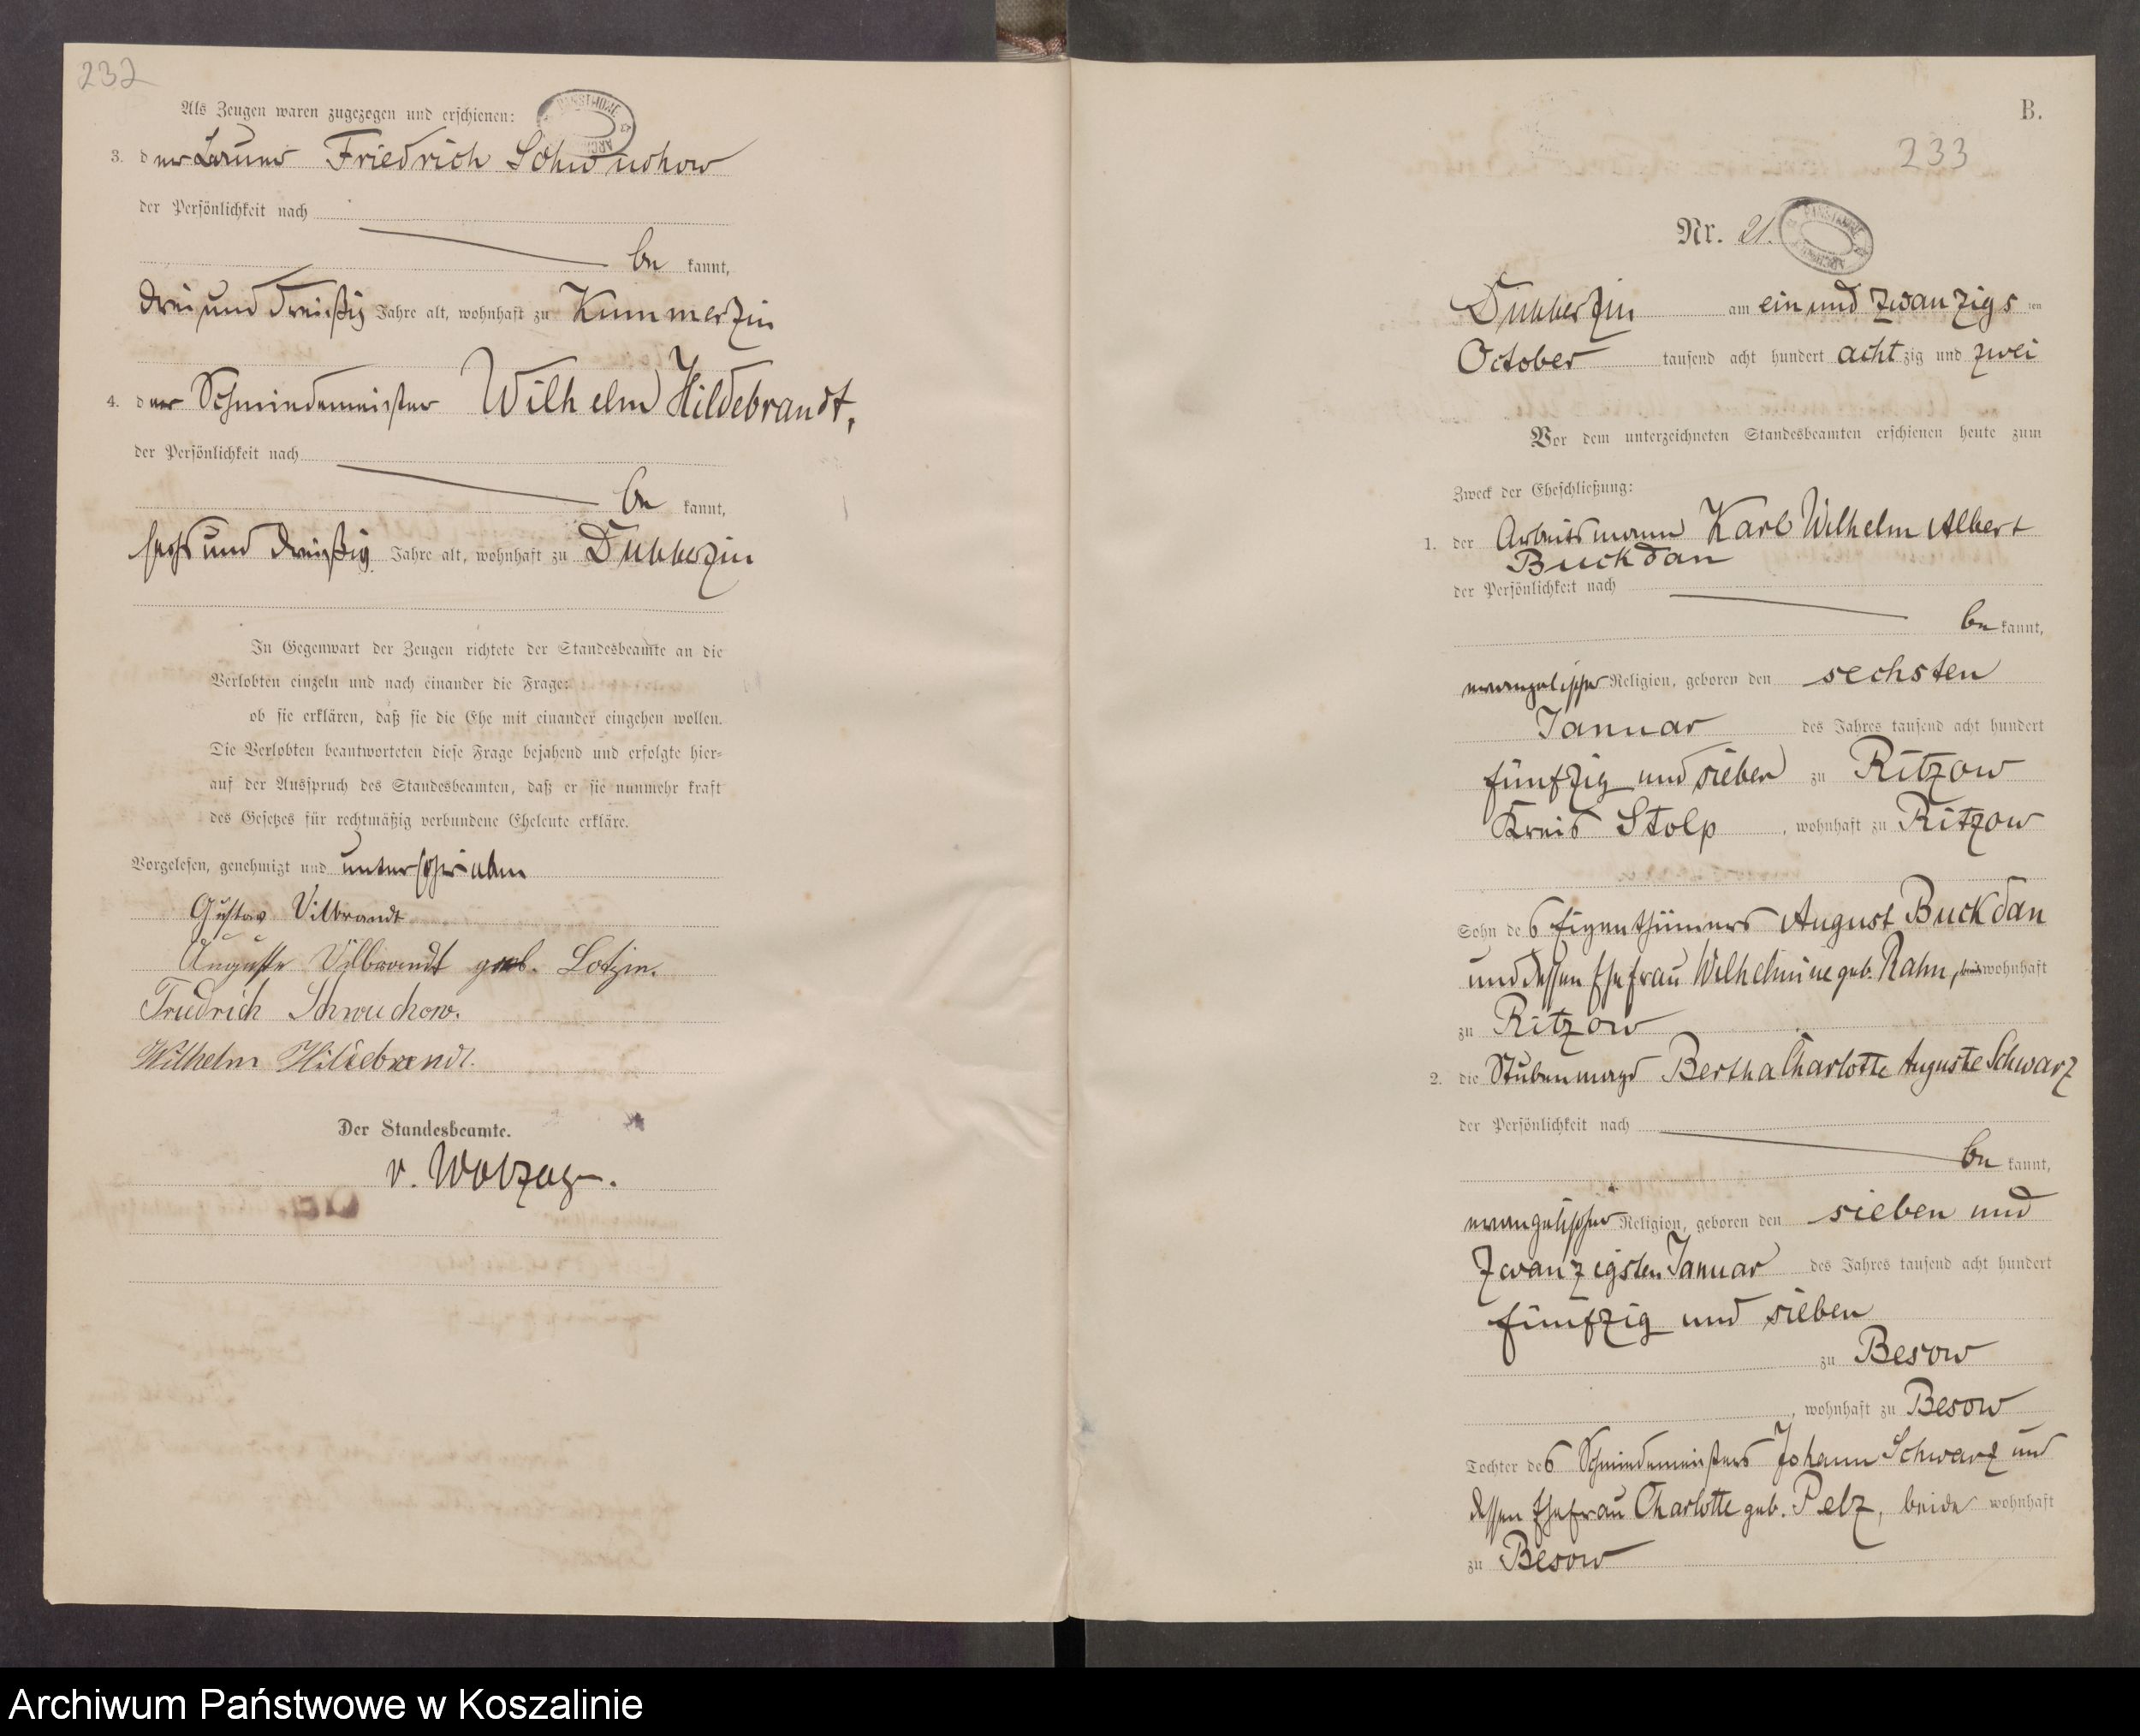 232
Als Zeugen waren zugezogen und erschienen:
3. der Bauer Friedrich Schwuchow
der Persönlichkeit nach
be kannt,
drei und dreißig Jahre alt, wohnhaft zu Kummerzin
4. der Schmiedemeister Wilhelm Hildebrandt,
der Persönlichkeit nach
be kannt,
sechs und dreißig Jahre alt, wohnhaft zu Dubberzin
In Gegenwart der Zeugen richtete der Standesbeamte an die
Verlobten einzeln und nach einander die Frage:
ob sie erklären, daß sie die Ehe mit einander eingehen wollen.
Die Verlobten beantworteten diese Frage bejahend und erfolgte hier-
auf der Ausspruch des Standesbeamten, daß er sie nunmehr kraft
des Gesetzes für rechtmäßig verbundene Eheleute erkläre.
Vorgelesen, genehmigt und unterschrieben
Gustav Vilbrandt
Auguste Vilbrandt geb. Lotzin.
Friedrich Schwuchow.
Wilhelm Hildebrandt.
Der Standesbeamte.
v. Wolzog.
B.
233
Nr. 21.
Dubberzin am ein und zwanzigs ten
October tausend acht hundert acht zig und zwei
Vor dem unterzeichneten Standesbeamten erschienen heute zum
Zweck der Eheschließung:
1. der Arbeitsmann Karl Wilhelm Albert
Buckdan
der Persönlichkeit nach
be kannt,
evangelischer Religion, geboren den sechsten
Januar des Jahres tausend acht hundert
fünfzig und sieben zu Ritzow
Kreis Stolp, wohnhaft zu Ritzow
Sohn des Eigenthümers August Buckdan
und dessen Ehefrau Wilhelmine geb. Rahn, beide wohnhaft
zu Ritzow
2. die Stubenmagd Bertha Charlotte Auguste Schwarz
der Persönlichkeit nach
be kannt,
evangelischer Religion, geboren den sieben und
zwanzigsten Januar des Jahres tausend acht hundert
fünfzig und sieben
zu Besow
, wohnhaft zu Besow
Tochter des Schmiedemeisters Johann Schwarz und
dessen Ehefrau Charlotte geb. Pelz, beide wohnhaft
zu Besow
Archiwum Państwowe w Koszalinie